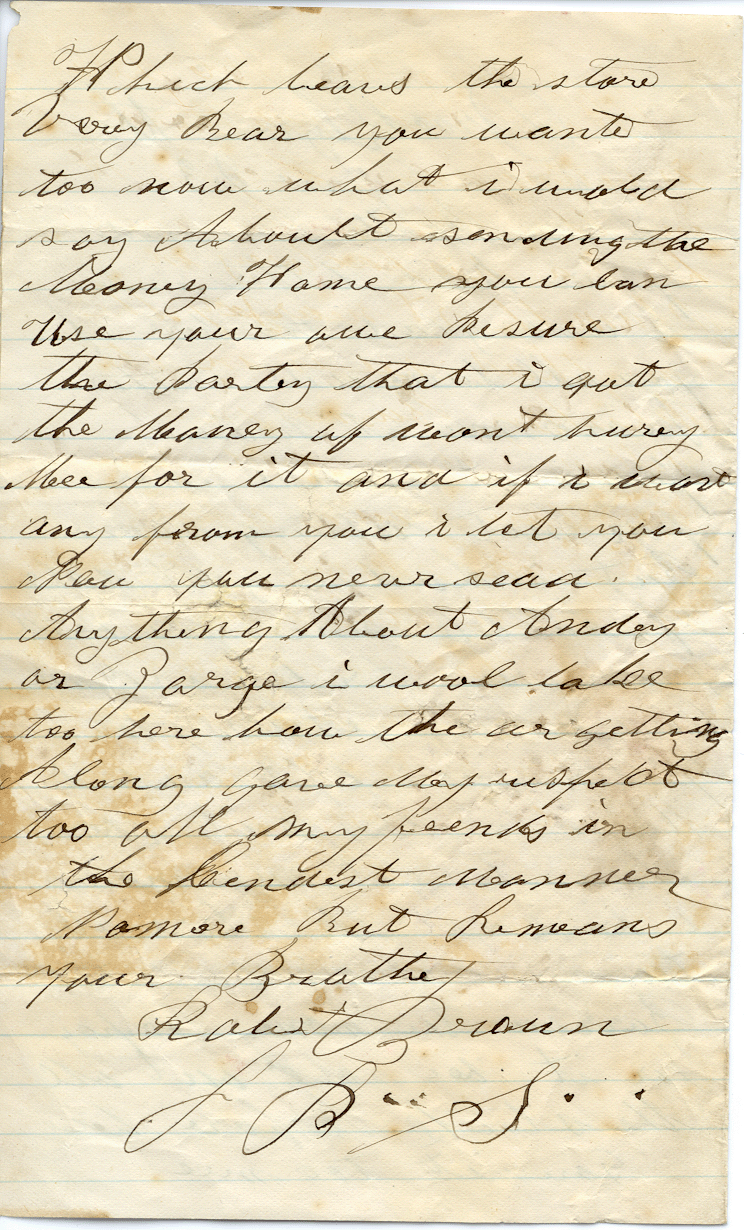 Which leavs the store
Very Bear you wante
too now what i wold
say Aboult sending the
Money Home you can
Use your owe Plesure
the Partey that i got
the Money of wont hurey
Mee for it and if i want
any from you i let you
Now you never sead
Anything About Andey
or Zarge i wool like
too here how the ar getting
Along gave My respekt
too all my freends in
the kendest Manner
Nomore But Remeans
your Brother
Robert Brown